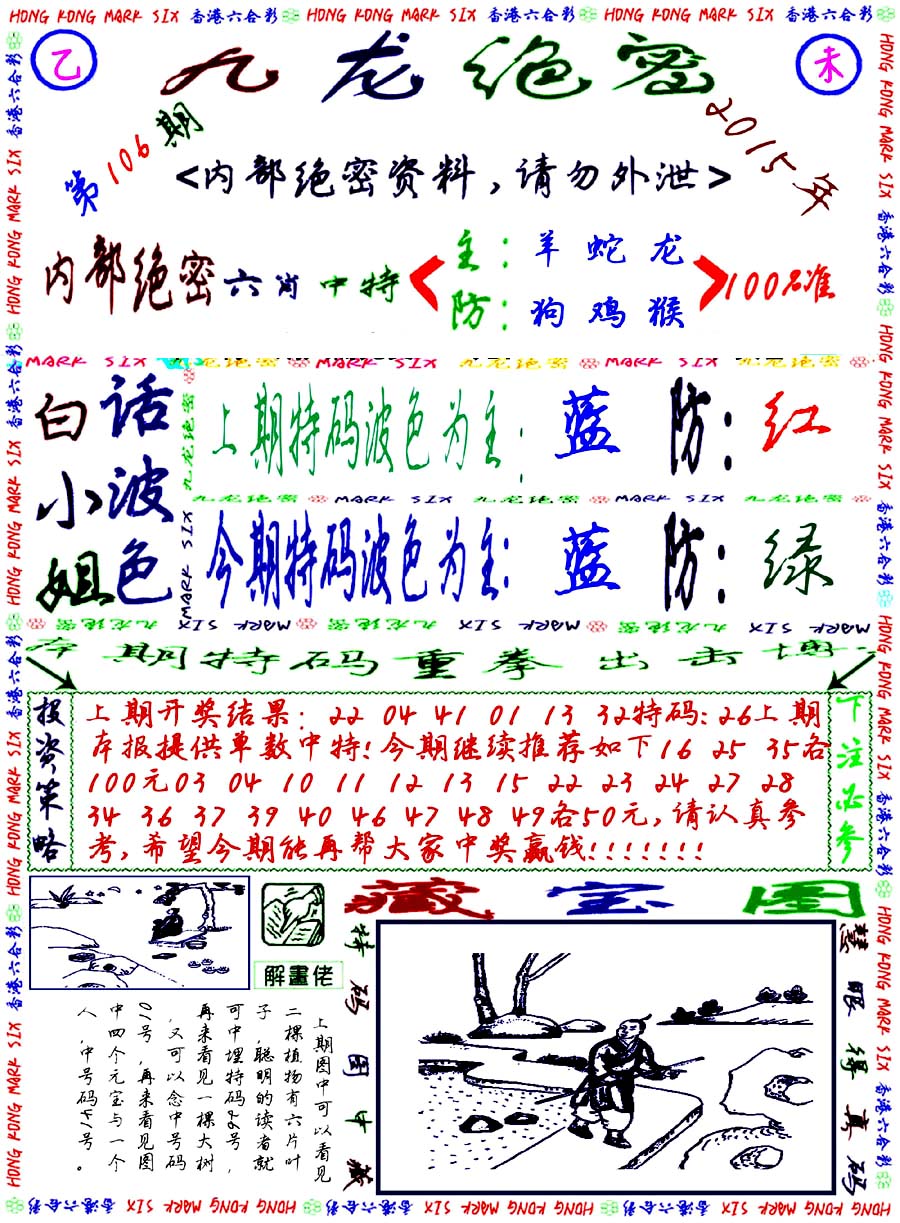 HONG KONG MARK SIX 香港六合彩 HONG KONG MARK SIX 香港六合彩 HONG KONG MARK SIX 香港六合彩
乙
九龙绝密
未
第106期
2015年
<内部绝密资料,请勿外泄>
内部绝密六肖中特
主:羊蛇龙
防:狗鸡猴
100%准
白话小波姐色
上期特码波色为主: 蓝 防: 红
九龙绝密 MARK SIX 九龙绝密 MARK SIX 九龙绝密
今期特码波色为主: 蓝 防: 绿
本期特码重拳出击博
投资策略
上期开奖结果: 22 04 41 01 13 32特码:26上期
本报提供单数中特!今期继续推荐如下16 25 35各
100元03 04 10 11 12 13 15 22 23 24 27 28
34 36 37 39 40 46 47 48 49各50元,请认真参
考,希望今期能再帮大家中奖赢钱!!!!!!!
下注必参
藏宝图
解畫佬
特码图中藏
慧眼得真码
上期图中可以看见
二棵植物有六片叶
子,聪明的读者就
可中埋特码26号,
再来看见一棵大树
,又可以念中号码
01号,再来看见图
中四个元宝与一个
人,中号码41号。